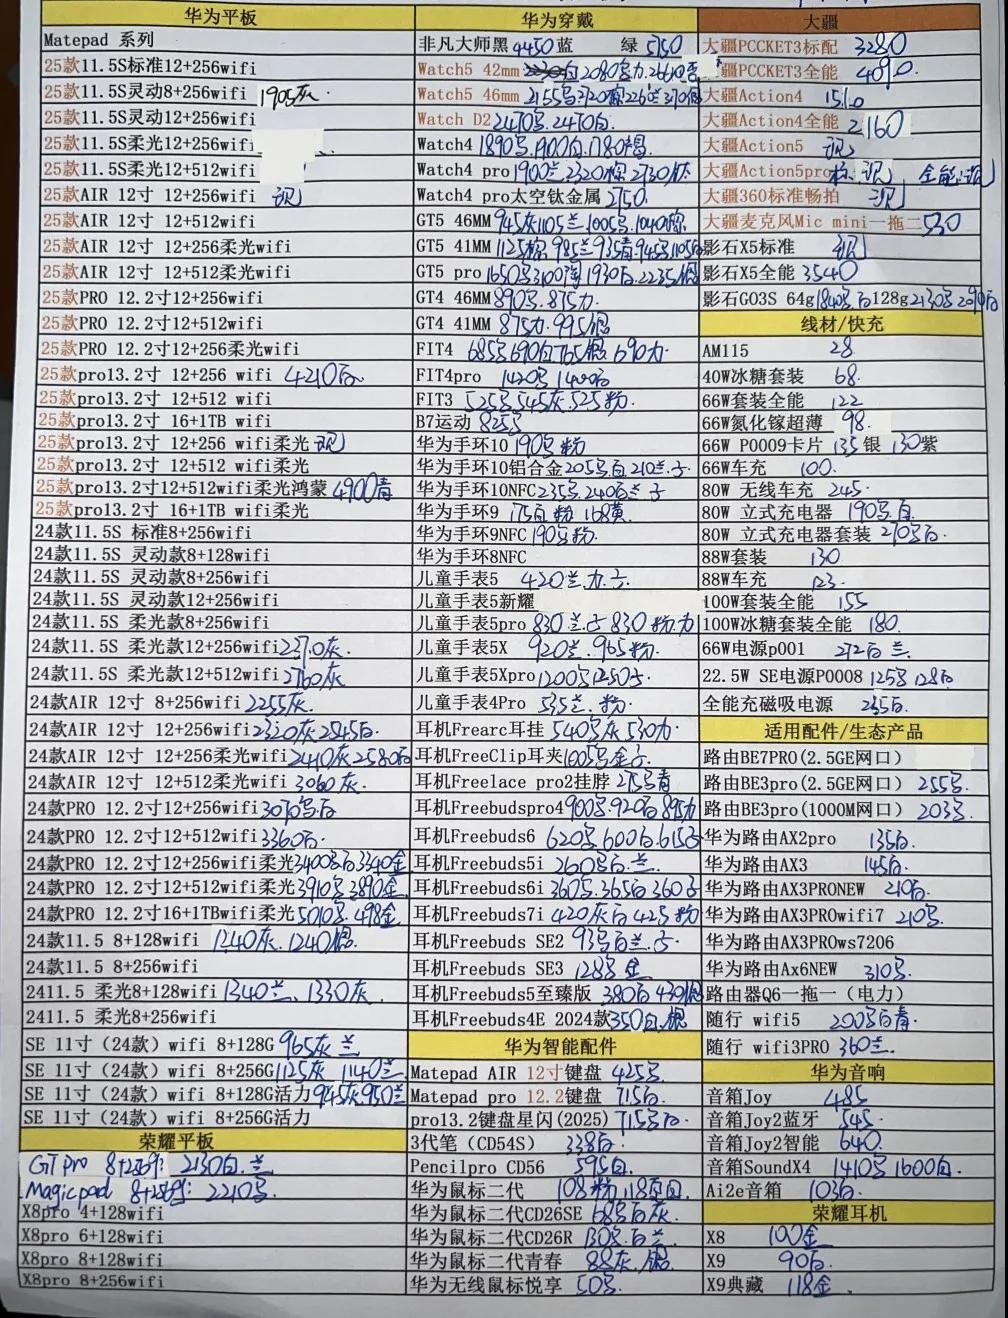 华为平板
Matepad 系列
25款11.5S标准12+256wifi
25款11.5S灵动8+256wifi 1905灰
25款11.5S灵动12+256wifi
25款11.5S柔光12+256wifi
25款11.5S柔光12+512wifi
25款AIR 12寸 12+256wifi 现
25款AIR 12寸 12+512wifi
25款AIR 12寸 12+256柔光wifi
25款AIR 12寸 12+512柔光wifi
25款PRO 12.2寸12+256wifi
25款PRO 12.2寸12+512wifi
25款PRO 12.2寸12+256柔光wifi
25款pro13.2寸 12+256 wifi 4210白
25款pro13.2寸 12+512 wifi
25款pro13.2寸 16+1TB wifi
25款pro13.2寸 12+256 wifi柔光 现
25款pro13.2寸 12+512 wifi柔光
25款pro13.2寸12+512wifi柔光鸿蒙 4900青
25款pro13.2寸 16+1TB wifi柔光
24款11.5S 标准8+256wifi
24款11.5S 灵动款8+128wifi
24款11.5S 灵动款8+256wifi
24款11.5S 灵动款12+256wifi
24款11.5S 柔光款8+256wifi
24款11.5S 柔光款12+256wifi 2270灰
24款11.5S 柔光款12+512wifi 2760灰
24款AIR 12寸 8+256wifi 2255灰
24款AIR 12寸 12+256wifi 2320灰 2545白
24款AIR 12寸 12+256柔光wifi 2410灰 2580白
24款AIR 12寸 12+512柔光wifi 3060灰
24款PRO 12.2寸12+256wifi 3070黑白
24款PRO 12.2寸12+512wifi 3360白
24款PRO 12.2寸12+256wifi柔光 3400黑白 3340金
24款PRO 12.2寸12+512wifi柔光 3910黑 3890金
24款PRO 12.2寸16+1TBwifi柔光 5010黑 498金
24款11.5 8+128wifi 1240灰. 1240银
24款11.5 8+256wifi
2411.5 柔光8+128wifi 1340兰、1330灰
2411.5 柔光8+256wifi
SE 11寸（24款）wifi 8+128G 965灰 兰
SE 11寸（24款）wifi 8+256G 1125灰 1140兰
SE 11寸（24款）wifi 8+128G活力 945灰 950兰
SE 11寸（24款）wifi 8+256G活力
荣耀平板
GTpro 8+256G: 2130白.兰
Magicpad 8+256G: 2210黑
X8pro 4+128wifi
X8pro 6+128wifi
X8pro 8+128wifi
X8pro 8+256wifi
华为穿戴
非凡大师黑 4450 蓝 绿 5750
Watch5 42mm 白 2080
Watch5 46mm 2155黑
Watch D2 2470黑. 2470白
Watch4 1890黑. 1900白. 1780褐
Watch4 pro 1900兰. 2320棕 2730灰
Watch4 pro太空钛金属 2750.
GT5 46MM 945灰 1105兰. 1005黑. 1040棕
GT5 41MM 1125棕. 985兰 935青 945黑 1105白
GT5 pro 1650黑 3100陶 1930白. 2235银
GT4 46MM 890黑. 875力.
GT4 41MM 875力. 995银
FIT4 685黑 690白 765银. 690力
FIT4pro 1420黑 1400白
FIT3 525黑. 545灰. 525粉.
B7运动 825黑
华为手环10 190黑 粉
华为手环10铝合金 205黑白 210兰.子
华为手环10NFC 235黑. 240白兰 子
华为手环9 175白 粉 168黄
华为手环9NFC 190黑 粉.
华为手环8NFC
儿童手表5 420兰.力.子
儿童手表5新耀
儿童手表5pro 830 兰.子 830 粉 力
儿童手表5X 920兰. 965粉.
儿童手表5Xpro 1200黑 1250子
儿童手表4Pro 535兰. 粉.
耳机Frearc耳挂 540黑灰 530力
耳机FreeClip耳夹 1005黑金子
耳机Freelace pro2挂脖 275黑青
耳机Freebudspro4 900黑. 920白 895力
耳机Freebuds6 620黑. 600白. 615子
耳机Freebuds5i 260黑白.兰
耳机Freebuds6i 360黑. 365白 360子
耳机Freebuds7i 420灰白 425粉
耳机Freebuds SE2 93黑白兰.子.
耳机Freebuds SE3 128黑 金
耳机Freebuds5至臻版 380白 430银
耳机Freebuds4E 2024款 350白.银
华为智能配件
Matepad AIR 12寸键盘 425黑
Matepad pro 12.2键盘 715白
pro13.2键盘星闪(2025) 715黑白
3代笔（CD54S） 338白
Pencilpro CD56 595白.
华为鼠标二代 108粉. 118黑白.
华为鼠标二代CD26SE 68黑白灰.
华为鼠标二代CD26R 130黑.白兰
华为鼠标二代青春 88灰.银
华为无线鼠标悦享 50黑.
大疆
大疆PCCKET3标配 3280
疆PCCKET3全能 4090.
大疆Action4
大疆Action4全能 2160
大疆Action5 现
大疆Action5pro 标.现 全能:现
大疆360标准畅拍 现
大疆麦克风Mic mini一拖二 530
影石X5标准 现
影石X5全能 3540
影石GO3S 64g 1840黑白128g 2130黑 2090白
线材/快充
AM115 28
40W冰糖套装 68.
66W套装全能 122
66W氮化镓超薄 98.
66W P0009卡片 135 银 130紫
66W车充 100.
80W 无线车充 245.
80W 立式充电器 190黑.白
80W 立式充电器套装 270黑白.
88W套装 130
88W车充 123.
100W套装全能 155
100W冰糖套装全能 180.
66W电源p001 272白 兰.
22.5W SE电源P0008 125黑 128白
全能充磁吸电源 235白.
适用配件/生态产品
路由BE7PRO(2.5GE网口)
路由BE3pro(2.5GE网口) 255黑.
路由BE3pro(1000M网口) 203黑.
华为路由AX2pro 135白.
华为路由AX3 145白.
华为路由AX3PRONEW 210白.
华为路由AX3PROwifi7 210黑.
华为路由AX3PROws7206
华为路由Ax6NEW 310黑.
路由器Q6一拖一（电力）
随行 wifi5 200黑白青.
随行 wifi3PRO 360兰.
华为音响
音箱Joy 485
音箱Joy2蓝牙 545.
音箱Joy2智能 640.
音箱SoundX4 1410黑 1600白.
Ai2e音箱 103白.
荣耀耳机
X8 100金
X9 90白.
X9典藏 118金.